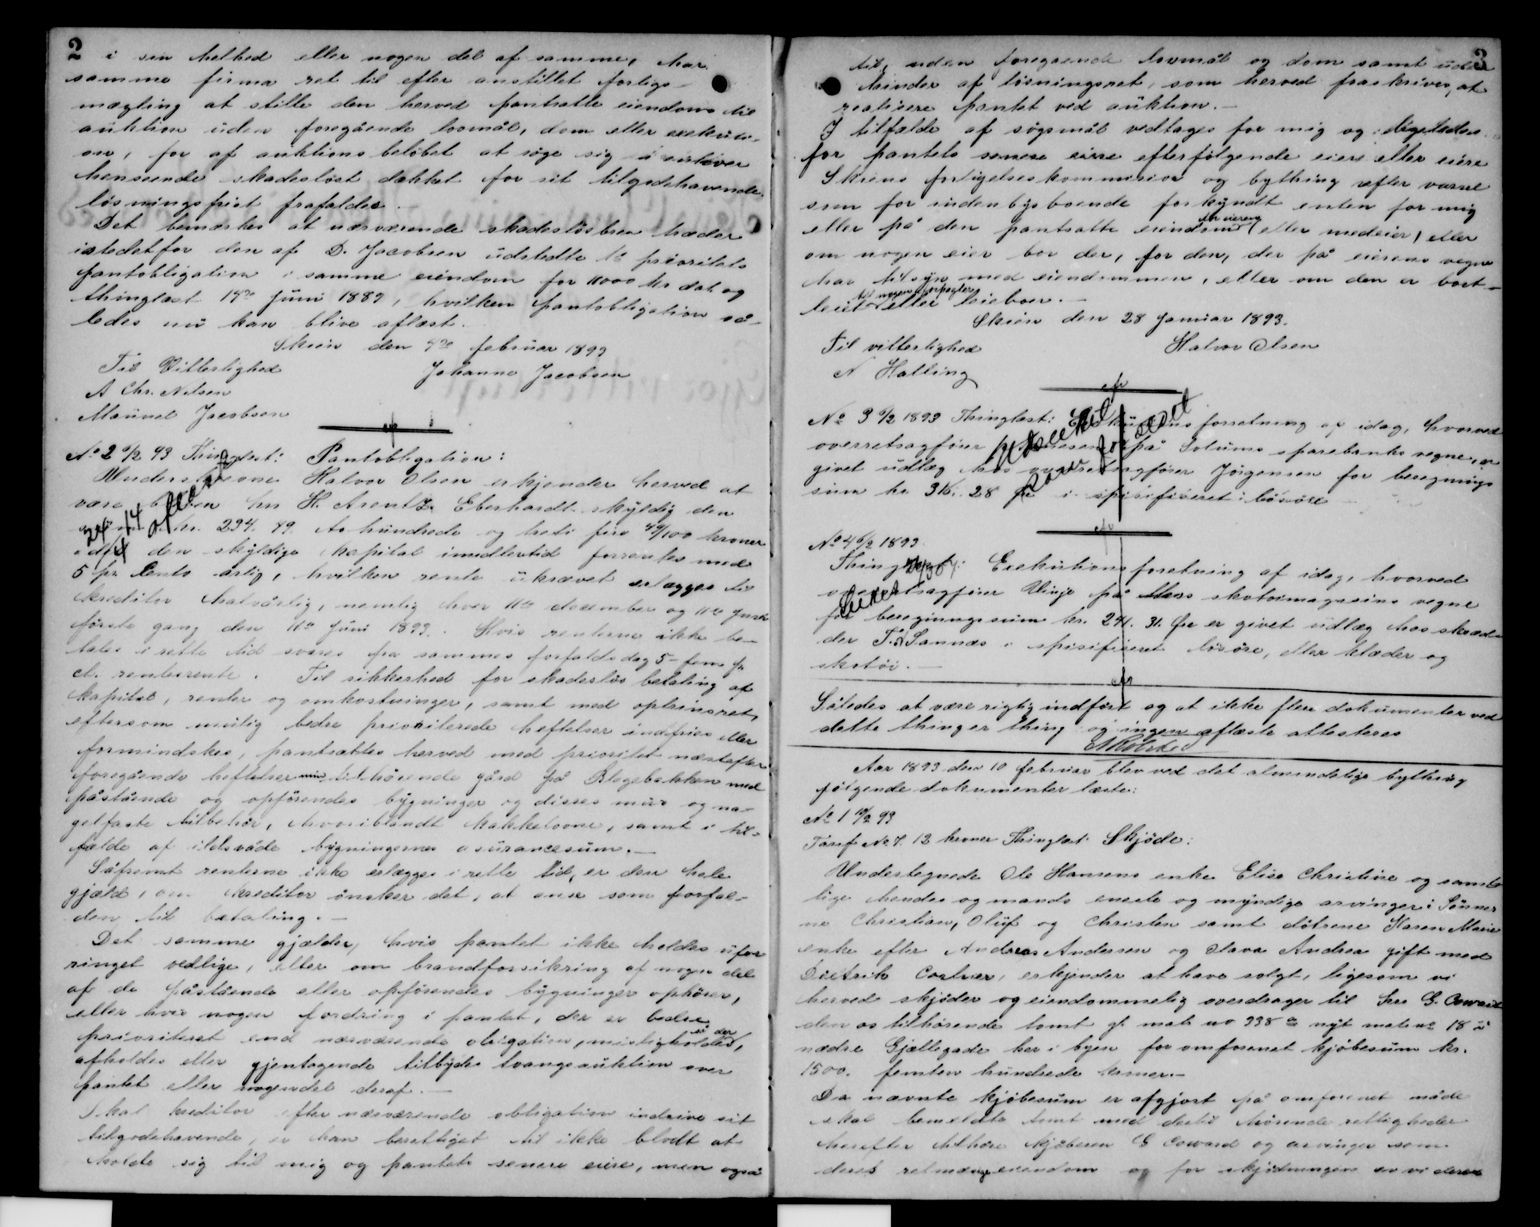 2
i sin helhed eller nogen del af samme, har
samme firma ret til efter anstillet forligs-
mægling at stille den herved pantsatte eiendom til
auktion uden foregående lovmål, dom eller exekuti-
on, for af auktionsbeløbet at søge sig i enhver
henseende skadesløst dækket for sit tilgodehavende,
løsningsfrist frafaldes.
Det bemærkes at nærværende skadesløsbrev træder
istedetfor den af D. Jacobsen udstedte 1ste prioritets
pantobligation i samme eiendom for 11000 kr dat og
thinglæst Juni 1889, hvilken pantobligation så-
ledes nu kan blive aflæst.
Skien den februar 1893
Til Vitterlighed Johanne Jacobsen
A Chr. Nilsen
Jacobsen
No 2 93 Thinglæst: Pantobligation:
Halvor Olsen erkjender herved at
være hr H. Arentz Eberhardt skyldig den
kr. 294. 49 to hundrede og fire 49/100 kroner
den skyldige kapital imidlertid forrentes med
5 pr Cento årlig, hvilken rente ukrævet erlægges til
kreditor halvårlig, nemlig hver 11te december og 11te Juni
første gang den 11te Juni 1893. Hvis renterne ikke be-
tales i rette tid svares fra sammes forfaldsdag 5 fem pr
ct. rentesrente. Til sikkerhed for skadesløs betaling af
kapital, renter og omkostninger, samt med opbrinsret,
eftersom mulig bedre prioriterede heftelser indfries eller
formindskes, pantsættes herved med prioritet næstefter
foregående heftelser min tilhørende gård på Blegebakken med
påstående og opførendes bygninger og disses mur og na-
gelfaste tilbehør, hvoriblandt kakkelovne, samt i til-
fælde af ildsvåde bygningernes asurancesum.-
Såfremt renterne ikke erlægges i rette tid, er den hele
gjæld, om kreditor ønsker det, at anse som forfal-
den til betaling.-
Det samme gjælder, hvis pantet ikke holdes ufor
ringet vedlige, eller om brandforsikring af nogen del
af de påstående eller opførendes bygninger ophører,
eller hvis nogen fordring i pantet, der er bedre
prioriteret end nærværende obligation, misligholdes,
afholdes eller gjentagende tilbydes tvangsauktion over
pantet eller nogendel deraf.-
Skal kreditor efter nærværende obligation inddrive sit
tilgodehavende, er han berettiget til ikke blodt at
holde sig til mig og pantets senere eiere, men også
3
til, uden foregaaende lovmål og dom samt uden
hinder af løsningsret, som herved fraskrives, at
realisere pantet ved auktion.-
I tilfælde af søgsmål vedtages for mig og ligeledes
for pantets senere eiere efterfølgende eiere eller eiere
Skiens forligelseskommission og bything efter varsel
som for indenbys boende forkyndt enten for mig
eller på den pantsatte eiendom (eller medeier) eller
om nogen eier bor der, for den, der på eierens vegne
har tilsyn med eiendommen, eller om den er bort-
leiet eller leieboer.-
Skien den 28 Januar 1893.
Til vitterlighed Halvor Olsen
N Halling
No 3 6/2 1893 Thinglæst: forretning af idag, hvorved
overretssagfører på Solums sparebanks vegne, er
givet udlæg hos overretssagfører Jørgensen for beregnings
sum kr 316. 28 øre i spisifiseret løsøre
No 4 6/2 1893
Exekutionsforretning af idag, hvorved
Vinje på skotøimagasins vegne
for beregningssum kr. 241. 31. øre er givet udlæg hos skræd-
der Sannæs i spisifiseret løsøre, eller klæder og
skotøi.-
Således at være rigtig indført og at ikke flere dokumenter ved
dette thing er thing og ingen aflæste attesteres
Aar 1893 den 10 februar blev ved det almindelige bything
følgende dokumenter læste:
No 1 10/2 93
Tarif No 7. 13 kroner Thinglæst: Skjøde:
Undertegnede Ole Hansens enke Elise Christine og samt-
lige hendes og mands eneste og myndige arvinger: Sønner
ne Christian, Oluf og Christen samt døtrene Karen Marie
enke efter Andreas Andersen og Andrea gift med
erkjender at have solgt, ligesom vi
herved skjøder og eiendommelig overdrager til hr G. Coward
den os tilhørende tomt gl. matr no 338 nyt matr no 18
nedre Gjællegade her i byen for omforenet kjøbesum kr.
1500. femten hundrede kroner.-
Da nævnte kjøbesum er afgjort på omforenet måde
skal bemeldte tomt med dertil hørende rettigheder
herefter tilhøre kjøberen G Coward og arvinger som
deres retmæssige eiendom og for skjødningen er vi deres